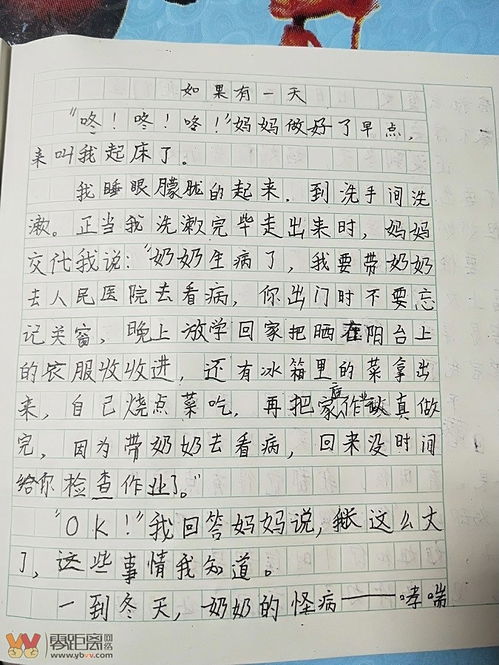 如果有一天
“咚！咚！咚！”妈妈做好了早点，
来叫我起床了。
我睡眼朦胧的起来，到洗手间洗
漱。正当我洗漱完毕走出来时，妈妈
交代我说：“奶奶生病了，我要带奶奶
去人民医院去看病，你出门时不要忘
记关窗，晚上放学回家把晒在阳台上
的衣服收收进，还有冰箱里的菜拿出
来，自己烧点菜吃，再把家庭作业认真做
完，因为带奶奶去看病，回来没时间
给你检查作业了。”
“OK！”我回答妈妈说，我长这么大
了，这些事情我知道。
一到冬天，奶奶的怪病——哮喘
零距离网络
www.ybvv.com